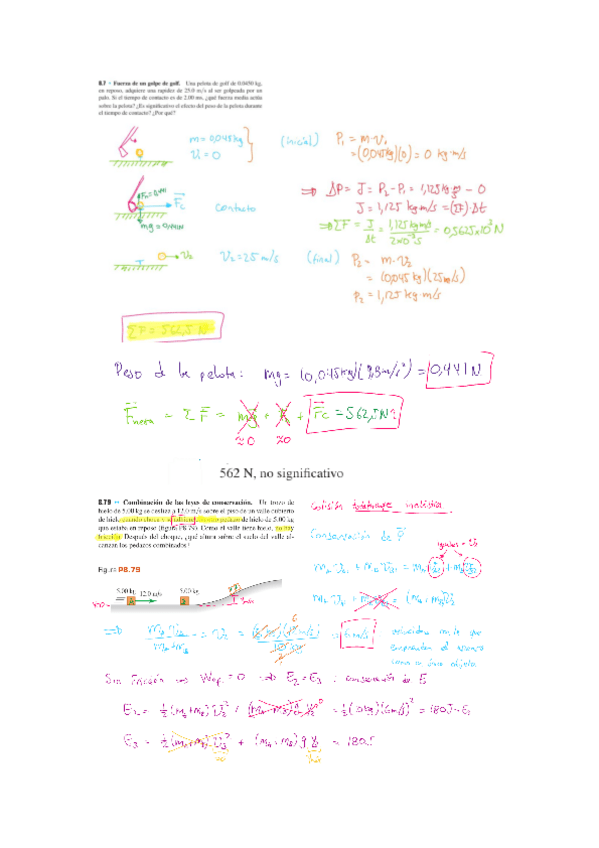 8.7 • Fuerza de un golpe de golf. Una pelota de golf de 0.0450 kg,
en reposo, adquiere una rapidez de 25.0 m/s al ser golpeada por un
palo. Si el tiempo de contacto es de 2.00 ms, ¿qué fuerza media actúa
sobre la pelota? ¿Es significativo el efecto del peso de la pelota durante
el tiempo de contacto? ¿Por qué?
m = 0,045 kg
V₁ = 0
(inicial)
P₁ = m·V₁
= (0,045kg)(0) = 0 kg·m/s
Fc
mg = 0,441N
contacto
⇒ ΔP = J = P₂ - P₁ = 1,125 kg - 0
J = 1,125 kg·m/s = (ΣF)·Δt
⇒ ΣF = J/Δt = 1,125 kg·m/s / 2x10⁻³ s = 0,5625x10³ N
V₂
V₂ = 25 m/s
(final)
P₂ = m·V₂
= (0,045 kg)(25m/s)
P₂ = 1,125 kg·m/s
ΣF = 562,5 N
Peso de la pelota: mg = (0,045kg)(9,8m/s²) = 0,441 N
Fneta = ΣF = mg + + Fc = 562,5N
≈0 ≈0
562 N, no significativo
8.79 •• Combinación de las leyes de conservación. Un trozo de
hielo de 5.00 kg se desliza a 12.0 m/s sobre el piso de un valle cubierto
de hielo, cuando choca y se adhiere a otro pedazo de hielo de 5.00 kg
que estaba en reposo (figura P8.79). Como el valle tiene hielo, no hay
fricción. Después del choque, ¿qué altura sobre el suelo del valle al-
canzan los pedazos combinados?
Colisión totalmente inelástica.
Conservación de P
iguales = V₂
Figura P8.79
5.00 kg 12.0 m/s 5.00 kg
A
= V₂ = = 6 m/s
velocidad en la que
como un único objeto.
Sin fricción ⇒ = 0 ⇒ E₂ = E₃ : conservación de E
E₂ = ½(mA+mB)V₂² + = ½(10kg)(6m/s)² = 180J = E₃
E₃ = ½(mA+mB)V₃² + (mA+mB)g = 180J